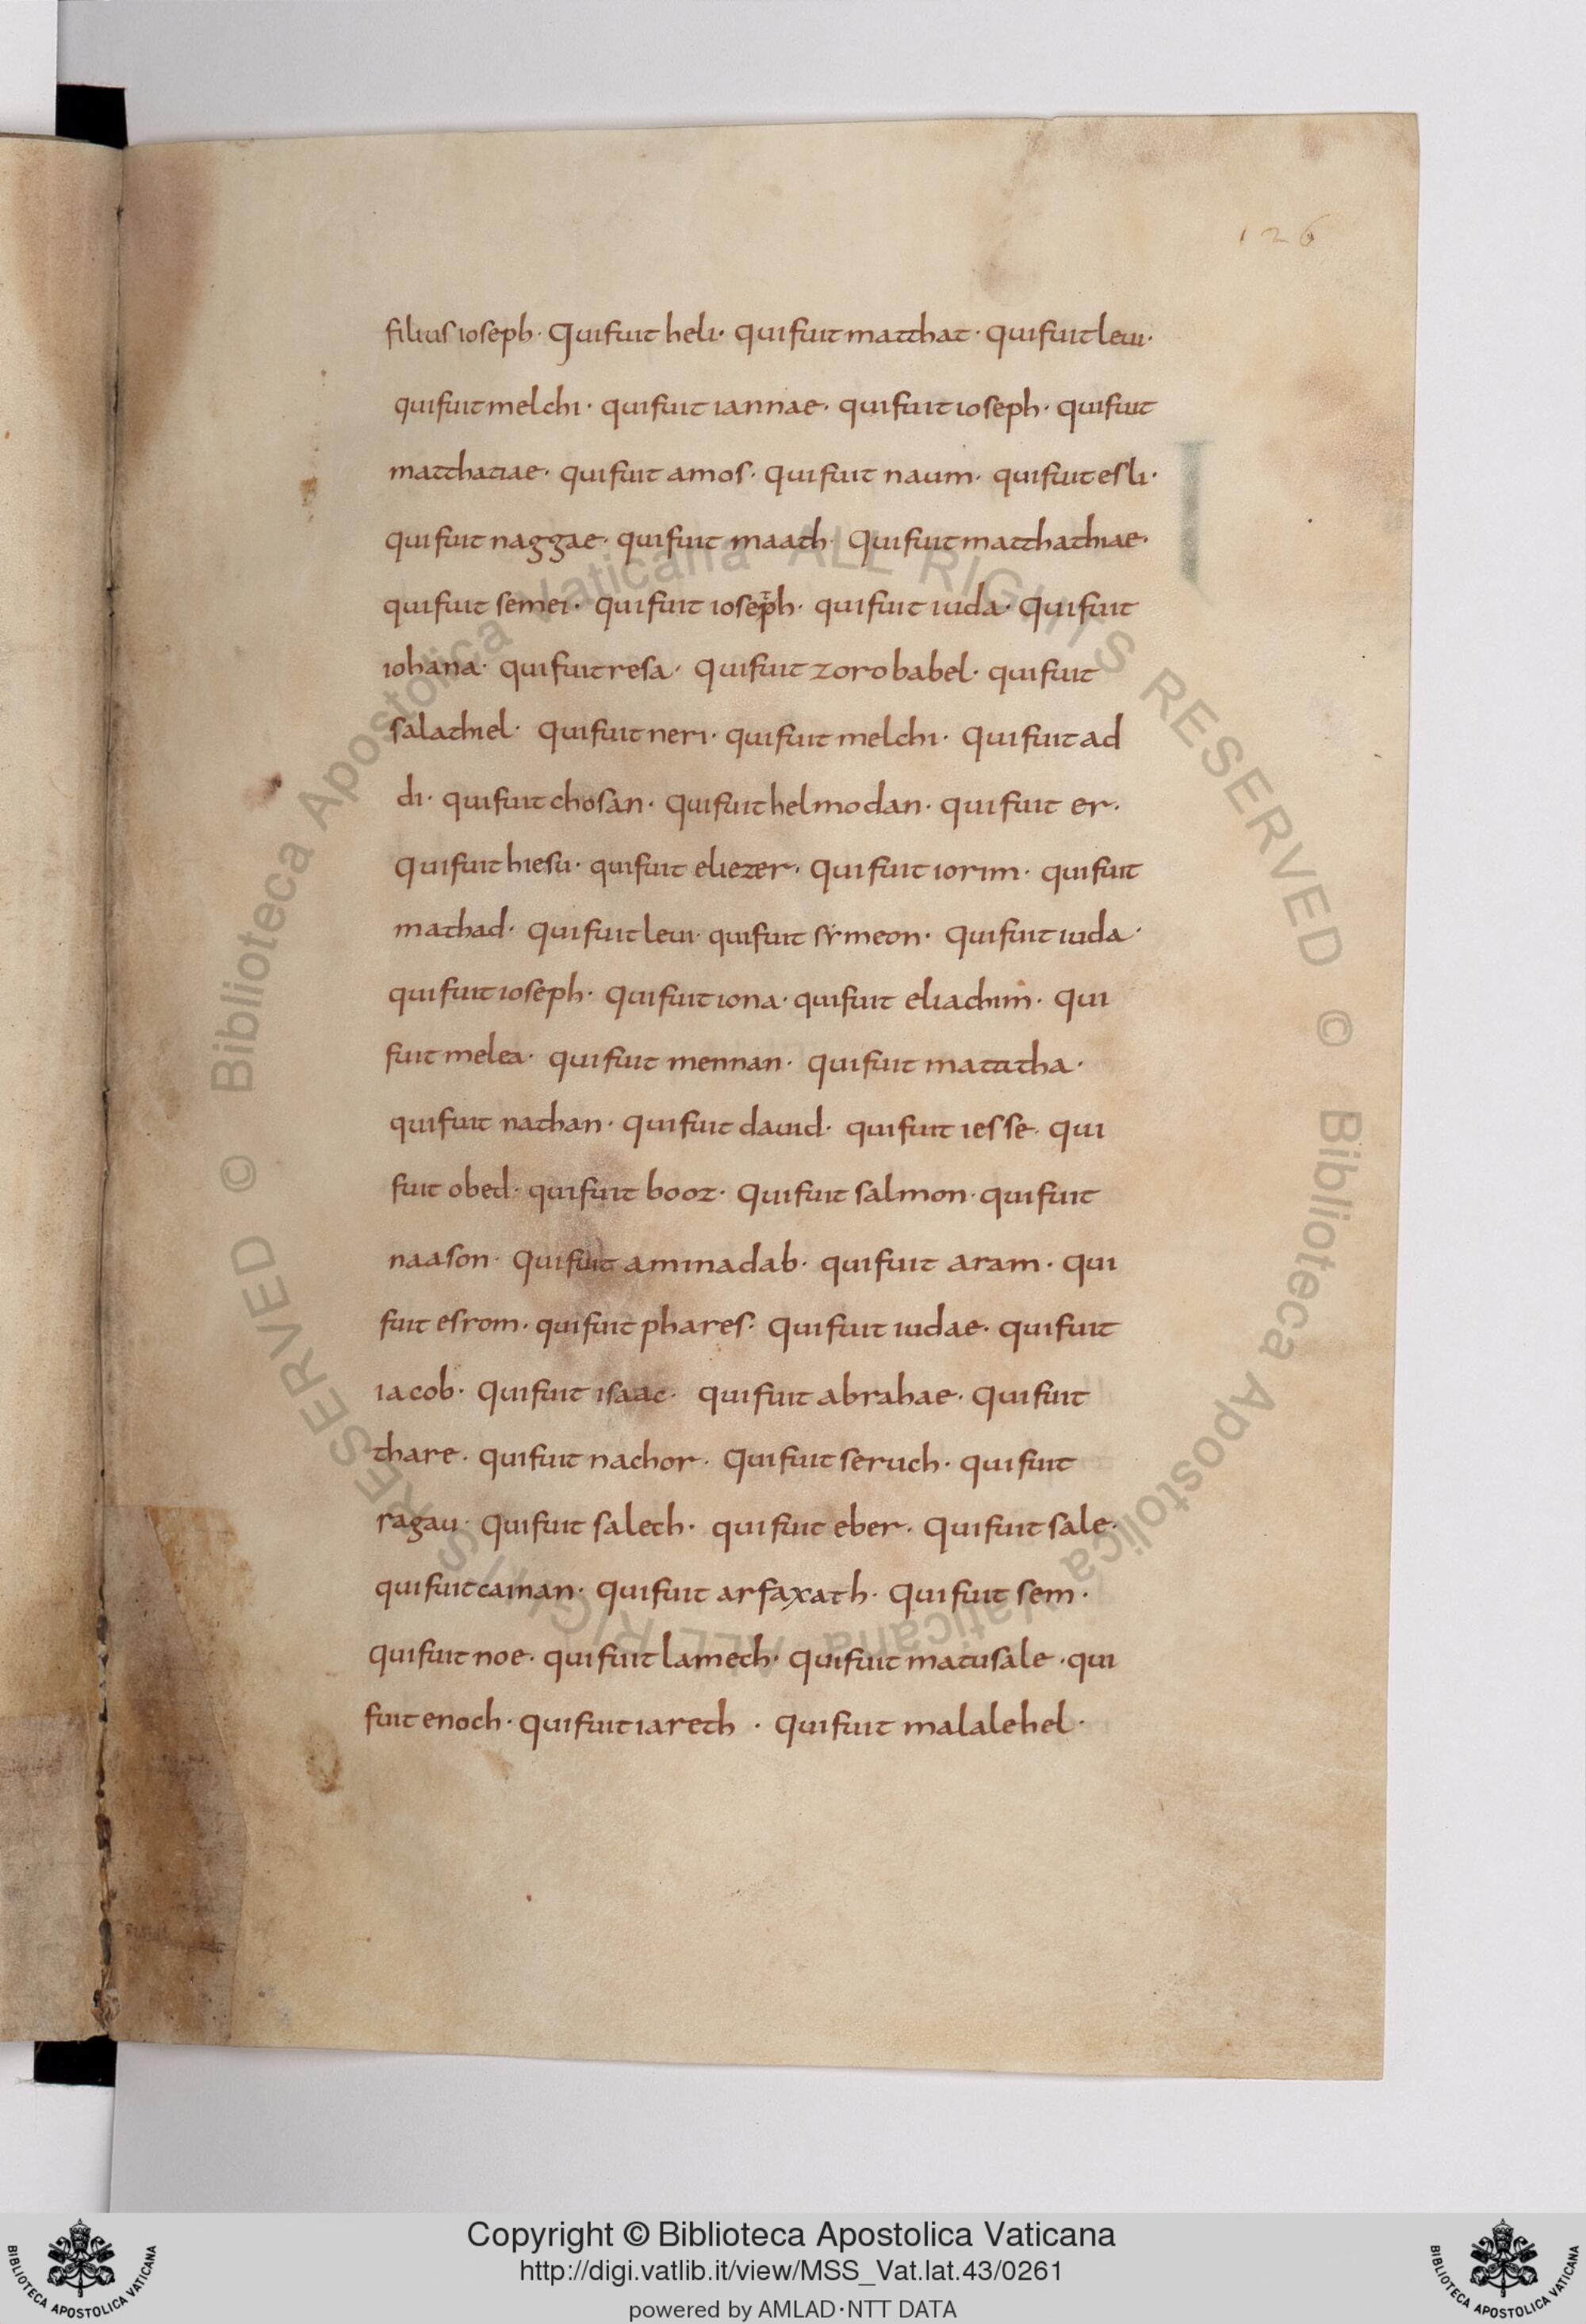 126
filius ioseph· Qui fuit heli· qui fuit matthat· qui fuit leui·
qui fuit melchi· qui fuit iannae· qui fuit ioseph· qui fuit
matthatiae· qui fuit amos· qui fuit naum· qui fuit esli·
qui fuit naggae· qui fuit maath· Qui fuit matthathiae·
qui fuit semei· qui fuit ioseph· qui fuit iuda· Qui fuit
iohana· qui fuit resa· Qui fuit zorobabel· qui fuit
salathiel· Qui fuit neri· qui fuit melchi· Qui fuit ad
di· qui fuit chosan· Qui fuit helmodan· qui fuit er·
Qui fuit hiesu· qui fuit eliezer· Qui fuit iorim· qui fuit
mathad· Qui fuit leui· qui fuit symeon· Qui fuit iuda·
qui fuit ioseph· Qui fuit iona· qui fuit eliachim· qui
fuit melea· qui fuit mennan· qui fuit matatha·
qui fuit nathan· Qui fuit dauid· qui fuit iesse· qui
fuit obed· qui fuit booz· Qui fuit salmon· qui fuit
naason· Qui fuit aminadab· qui fuit aram· qui
fuit esrom· qui fuit phares· Qui fuit iudae· qui fuit
iacob· Qui fuit isaac· qui fuit abrahae· Qui fuit
thare· qui fuit nachor· Qui fuit seruch· qui fuit
ragau· Qui fuit falech· qui fuit eber· Qui fuit sale·
qui fuit cainan· Qui fuit arfaxath· Qui fuit sem·
qui fuit noe· qui fuit lamech· Qui fuit matusale· qui
fuit enoch· Qui fuit iareth· Qui fuit malalehel·
© Biblioteca Apostolica Vaticana ALL RIGHTS RESERVED
© Biblioteca Apostolica Vaticana ALL RIGHTS RESERVED
Copyright © Biblioteca Apostolica Vaticana
http://digi.vatlib.it/view/MSS_Vat.lat.43/0261
powered by AMLAD·NTT DATA
BIBLIOTECA APOSTOLICA VATICANA
BIBLIOTECA APOSTOLICA VATICANA